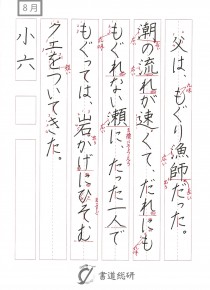 8月
父は、もぐり漁師だった。
潮の流れが速くて、だれにも
もぐれない瀬に、たった一人で
もぐっては、岩かげにひそむ
クエをついてきた。
小六
書道総研